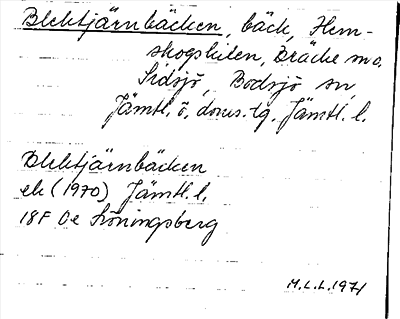 Blektjärnbäcken, bäck, Hem-
skogskilen, Bräcke mo.
Sidsjö, Bodsjö sn,
Jämtl. ö. doms.lg. Jämtl. l.
Blektjärnbäcken
ek (1970) Jämtl. l.
18F 0e Löningsberg
M.L.L. 1971